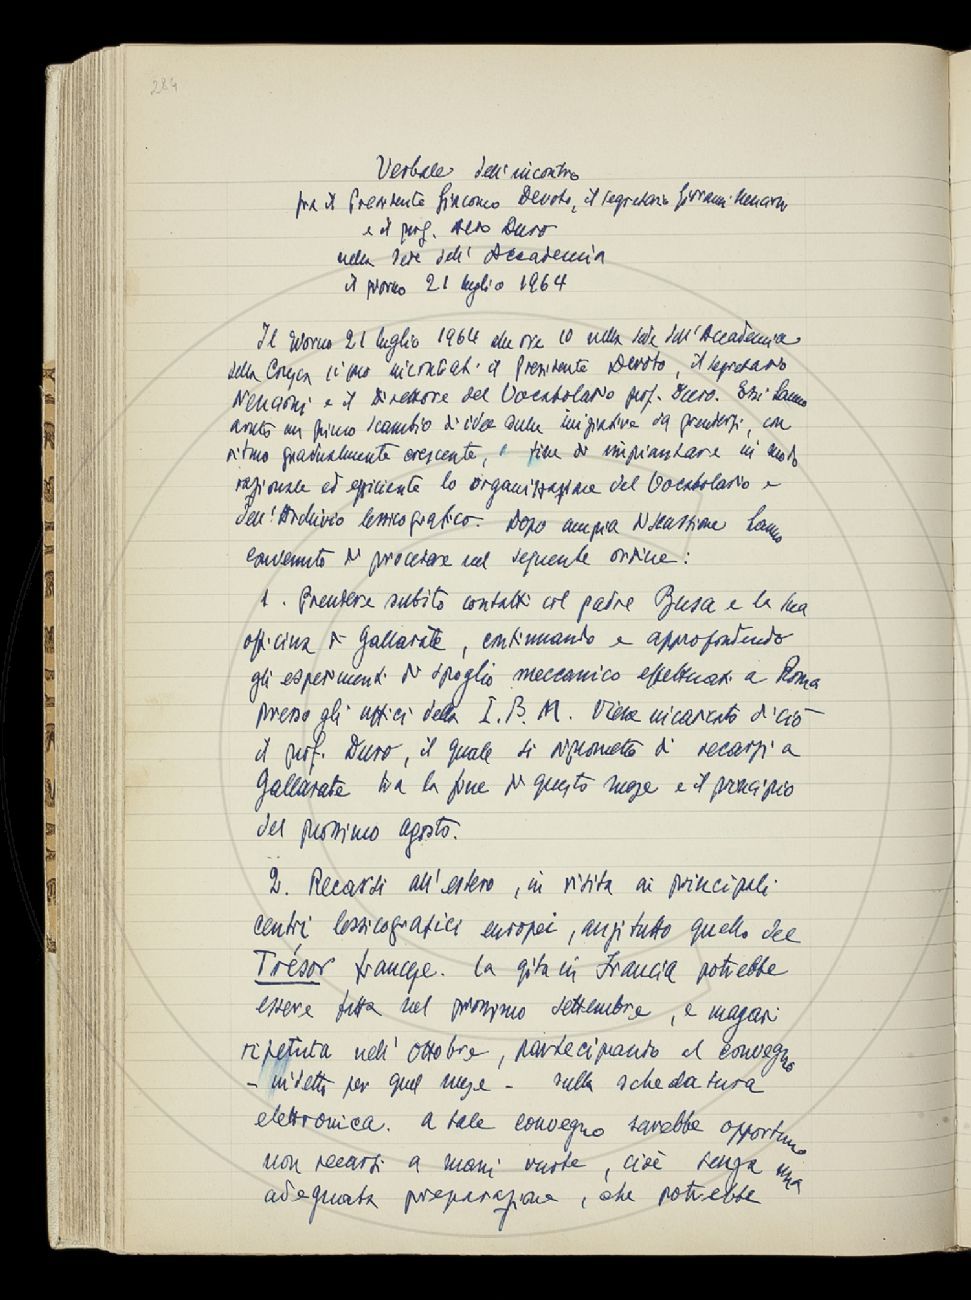 284
Verbale dell'incontro
fra il Presidente Giacomo Devoto, il segretario Giovanni Nencioni
e il prof. Aldo Duro
nella sede dell'Accademia
il giorno 21 luglio 1964
Il giorno 21 luglio 1964 alle ore 10 nella sede dell'Accademia
della Crusca si sono incontrati il Presidente Devoto, il segretario
Nencioni e il Direttore del Vocabolario prof. Duro. Essi hanno
avuto un primo scambio di idee sulle iniziative da prendersi, con
ritmo gradualmente crescente, a fine di impiantare in modo
razionale ed efficiente la organizzazione del Vocabolario e
dell'Archivio lessicografico. Dopo ampia discussione hanno
convenuto di procedere nel seguente ordine:
1. Prendere subito contatti col padre Busa e la sua
officina di Gallarate, continuando e approfondendo
gli esperimenti di spoglio meccanico effettuati a Roma
presso gli uffici della I.B.M. Viene incaricato di ciò
il prof. Duro, il quale si ripromette di recarsi a
Gallarate tra la fine di questo mese e il principio
del prossimo agosto.
2. Recarsi all'estero, in visita ai principali
centri lessicografici europei, anzitutto quello del
Trésor francese. La gita in Francia potrebbe
essere fatta nel prossimo settembre, e magari
ripetuta nell'ottobre, partecipando al convegno
- indetto per quel mese - sulla schedatura
elettronica. A tale convegno sarebbe opportuno
non recarsi a mani vuote, cioè senza una
adeguata preparazione, che potrebbe